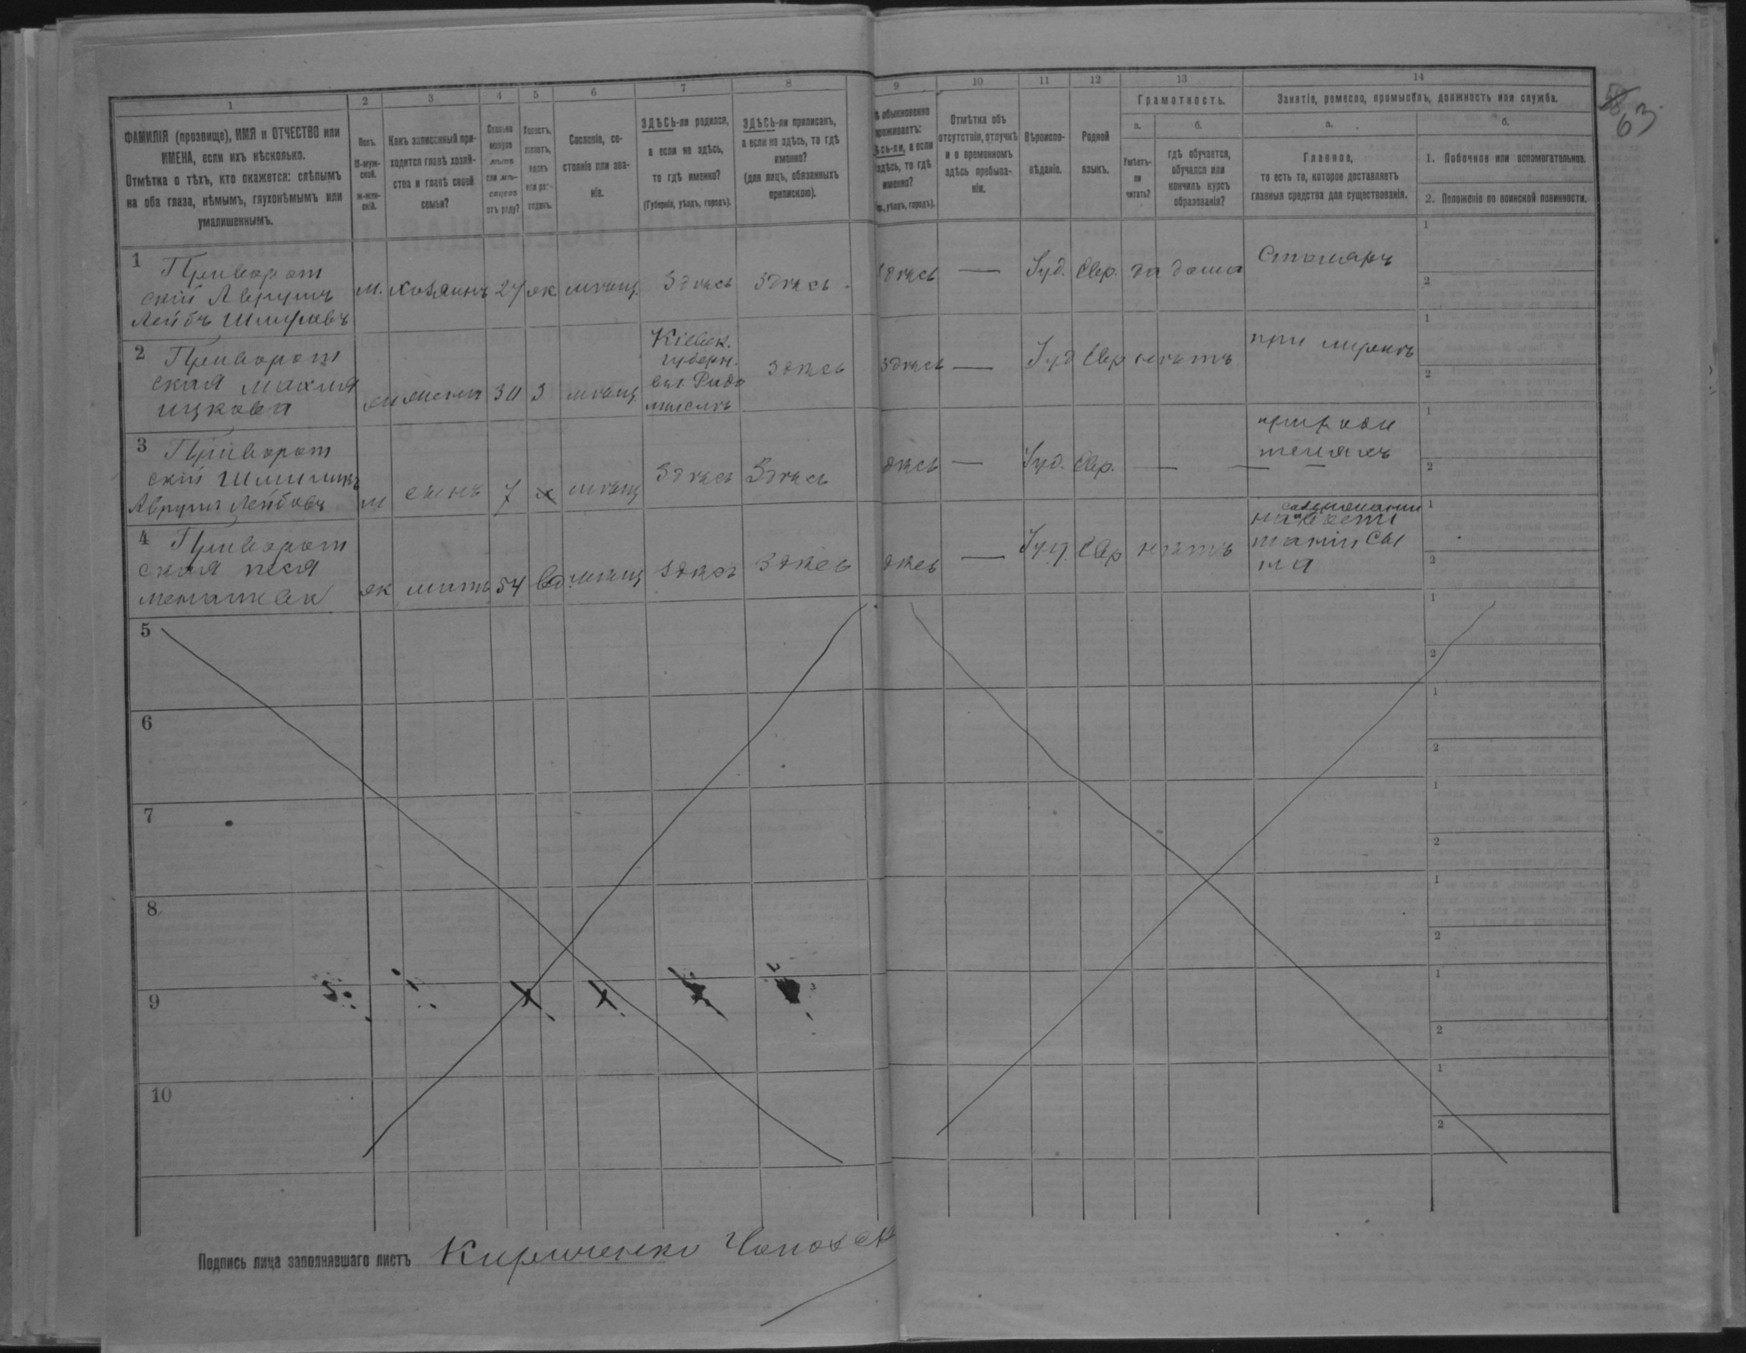 58
63
1 2 3 4 5 6 7 8 9 10 11 12 13 14
ФАМИЛІЯ (прозвище), ИМЯ и ОТЧЕСТВО или
ИМЕНА, если ихъ нѣсколько.
Отмѣтка о тѣхъ, кто окажется: слѣпымъ
на оба глаза, нѣмымъ, глухонѣмымъ или
умалишеннымъ.
Полъ.
Какъ записанный при-
ходится главѣ хозяй-
ства и главѣ своей
семьи?
Сословіе, со-
стояніе или зва-
ніе.
ЗДѢСЬ-ли родился,
а если не здѣсь,
то гдѣ именно?
(Губернія, уѣздъ, городъ).
ЗДѢСЬ-ли приписанъ,
а если не здѣсь, то гдѣ
именно?
(для лицъ, обязанныхъ
припискою).
обыкновенно
проживаетъ:
здѣсь-ли, а если
здѣсь, то гдѣ
именно?
уѣздъ, городъ).
Отмѣтка объ
отсутствіи, отлучкѣ
и о временномъ
здѣсь пребыва-
ніи.
Вѣроиспо-
вѣданіе.
Родной
языкъ.
Грамотность.
а.
Умѣетъ-
ли
читать?
б.
гдѣ обучается,
обучался или
кончилъ курсъ
образованія?
Занятіе, ремесло, промыселъ, должность или служба.
а.
Главное,
то есть то, которое доставляетъ
главныя средства для существованія.
б.
1. Побочное или вспомогательное.
2. Положеніе по воинской повинности.
1 Приворот
скій Аврумъ
Лейбъ Шмулевъ
м. хозяинъ 27 ж мѣщ. Здѣсь Здѣсь Здѣсь — Іуд. Евр. да дома Столяръ
2 Приворот
ская Махля
Ицкова
жена 30 З мѣщ Кіевск.
губерн.
Радо
мыслѣ
здѣсь здѣсь — Іуд Евр нѣтъ при мужѣ
3 Приворот
скій Шмиликъ
Аврумъ Лейбовъ
м сынъ 7 х мѣщ Здѣсь Здѣсь здѣсь — Іуд. Евр. — — при роди
теляхъ
4 Приворот
ская Песя
ж мать 54 Вд. мѣщ здѣсь здѣсь здѣсь — Іуд Евр нѣтъ на
сы
на
5
6
7
8
9
10
1
2
1
2
1
2
1
2
1
2
1
2
1
2
1
2
1
2
1
2
Подпись лица заполнявшаго листъ Кириченко